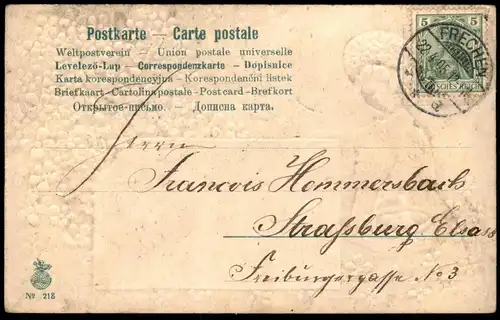 Postkarte – Carte postale
Weltpostverein – Union postale universelle
Levelezö-Lap – Correspondenzkarte – Dopisnice
Karta korespondencyjna – Korespondenční lístek
Briefkaart – Cartolina postale – Post card – Brefkort
Открытое-письмо. – Дописна карта.
5 5
FRECHEN
DEUTSCHES REICH
Herrn
Francois Hommersbach
Straßburg Elsass
Freiburgergasse No 3
No 218